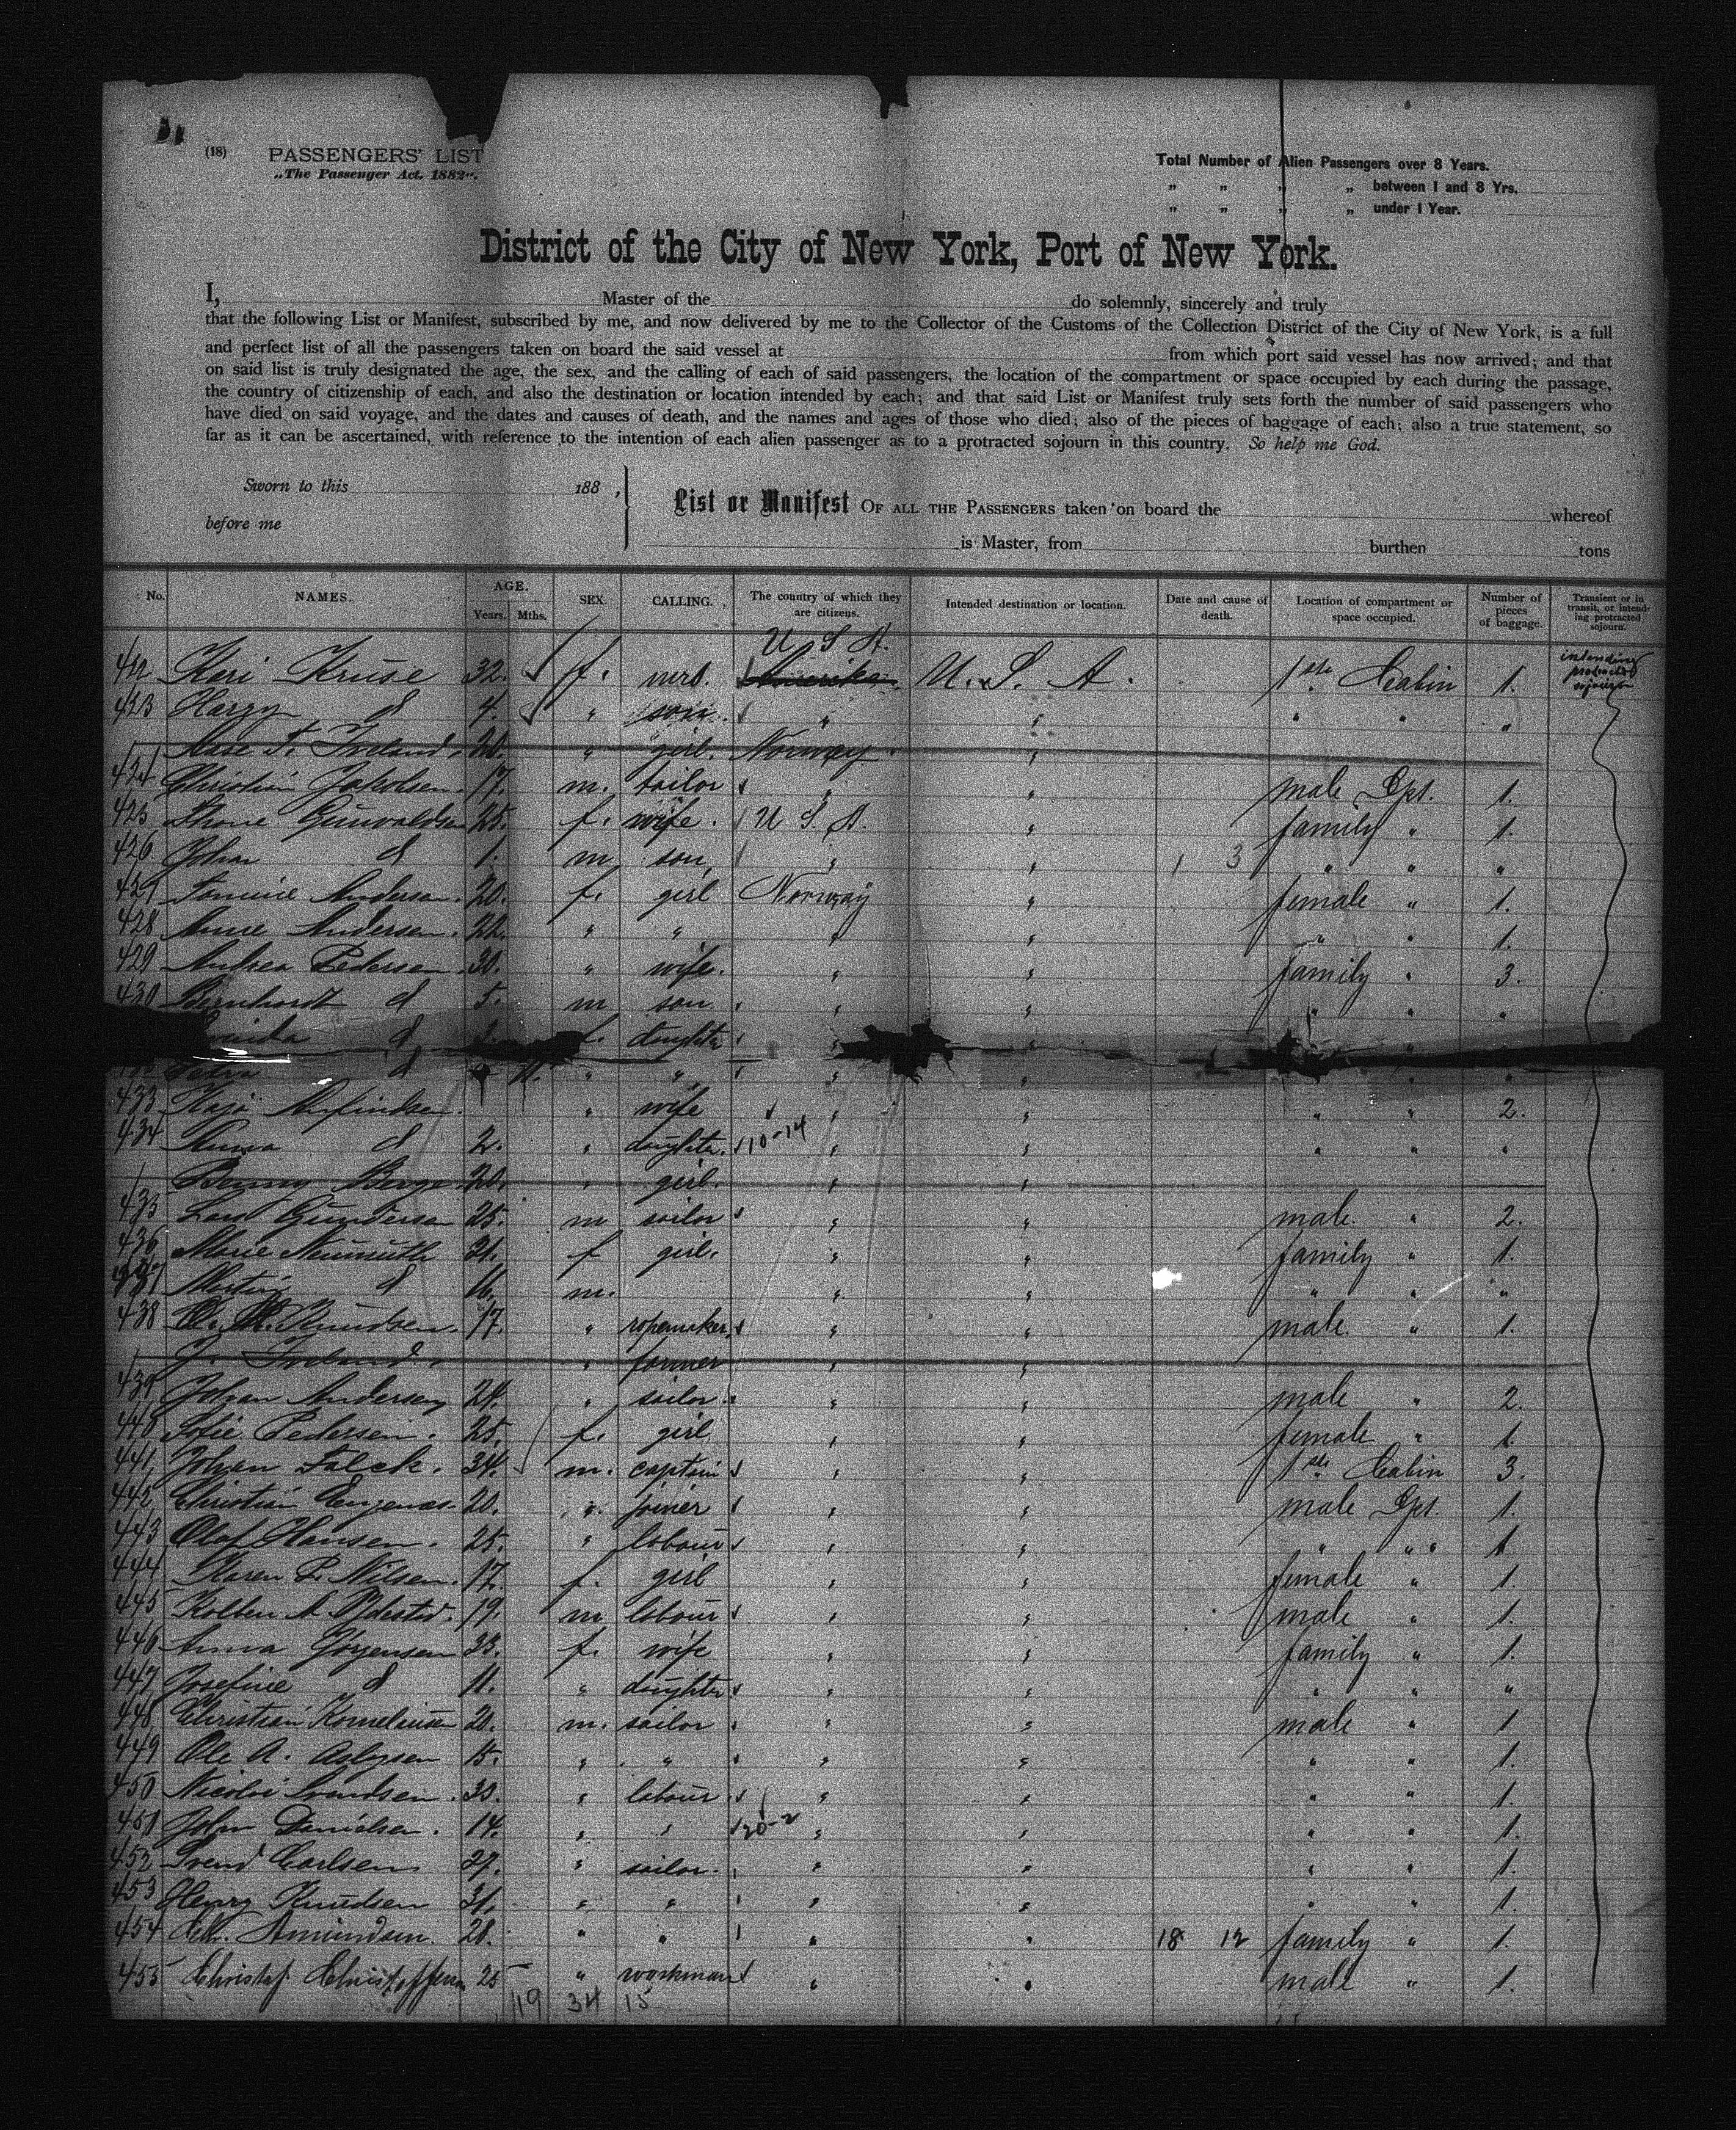 (18) PASSENGERS' LIST
„The Passenger Act. 1882".
Total Number of Alien Passengers over 8 Years.
„ „ „ „ between 1 and 8 Yrs.
„ „ „ „ under 1 Year.
District of the City of New York, Port of New York.
I, Master of the do solemnly, sincerely and truly
that the following List or Manifest, subscribed by me, and now delivered by me to the Collector of the Customs of the Collection District of the City of New York, is a full
and perfect list of all the passengers taken on board the said vessel at from which port said vessel has now arrived; and that
on said list is truly designated the age, the sex, and the calling of each of said passengers, the location of the compartment or space occupied by each during the passage,
the country of citizenship of each, and also the destination or location intended by each; and that said List or Manifest truly sets forth the number of said passengers who
have died on said voyage, and the dates and causes of death, and the names and ages of those who died; also of the pieces of baggage of each; also a true statement, so
far as it can be ascertained, with reference to the intention of each alien passenger as to a protracted sojourn in this country. So help me God.
Sworn to this 188 ,
before me
List or Manifest OF ALL THE PASSENGERS taken on board the whereof
is Master, from burthen tons
No. NAMES. AGE. Years. Mths. SEX. CALLING. The country of which they are citizens. Intended destination or location. Date and cause of death. Location of compartment or space occupied. Number of pieces of baggage. Transient or in transit, or intending protracted sojourn.
U S A.
422 Kari Kruse 32. f. Amerika U. S. A. 1ste Cabin 1. intending protracted sojourn
423 Harry d 4. " son. " " " " "
Aase T. Ireland. 20. " girl. Norway "
424 Christin Jakobsen. 17. m. tailor " " male Cpt. 1.
425 Thone Gunvaldsen 25. f. wife. U S. A. " family " 1.
426 Johan d 1. m son, " " 1 3 " " "
427 Andersen. 20. f. girl Norway " female " 1.
428 Anne Andersen. 22. " " " " " " 1.
429 Andrea Pedersen. 30. " wife. " " family " 3.
430 Bernhardt d 5. m son " " " " "
d f. daughter " " "
Petra d " " " " " "
433 Kaja Anfindsen. " wife " " " " 2.
434 Anna d 2. " daughter. 10-14 " " " " "
Benny Berge 20. " girl. " "
435 Lars Gundersen 25. m sailor " " male " 2.
436 Marie Neumuth 21. f girl. " " family " 1.
437 Martin d m. " " " " "
438 Knudsen. 17. " ropemaker, " " male " 1.
J. Ireland. " farmer " "
439 Johan Andersen 24. " sailor. " " male " 2.
440 Sofie Pedersen. 25. f. girl " " female " 1.
441 Johan Falck. 34. m. captain " " 1ste Cabin 3.
442 Christian 20. " joiner " " male Cpt. 1.
443 Olaf Hansen. 25. " labour " " " " " 1
444 Karen P. Nilsen. 17. f. girl " " female " 1.
445 19. m labour " " male " 1.
446 Anna Jörgensen 33. f. wife " " family " 1.
447 Josefine d 11. " daughter " " " " "
448 Christian Kornelinsen 20. m. sailor " " male " 1
449 Ole A. Aslagsen 15. " " " " " " 1.
450 Nicolai Svendsen. 30. " labour " " " " 1.
451 John Danielsen. 14. " " 20-2 " " " " 1.
452 Svend Carlsen 27. " sailor. " " " " 1.
453 Henry Knudsen 31. " " " " " " 1.
454 Amundsen. 28. " " " " 18 12 family " 1.
455 Christof. Christoffersen 25 " workman " " male " 1.
19 34 15